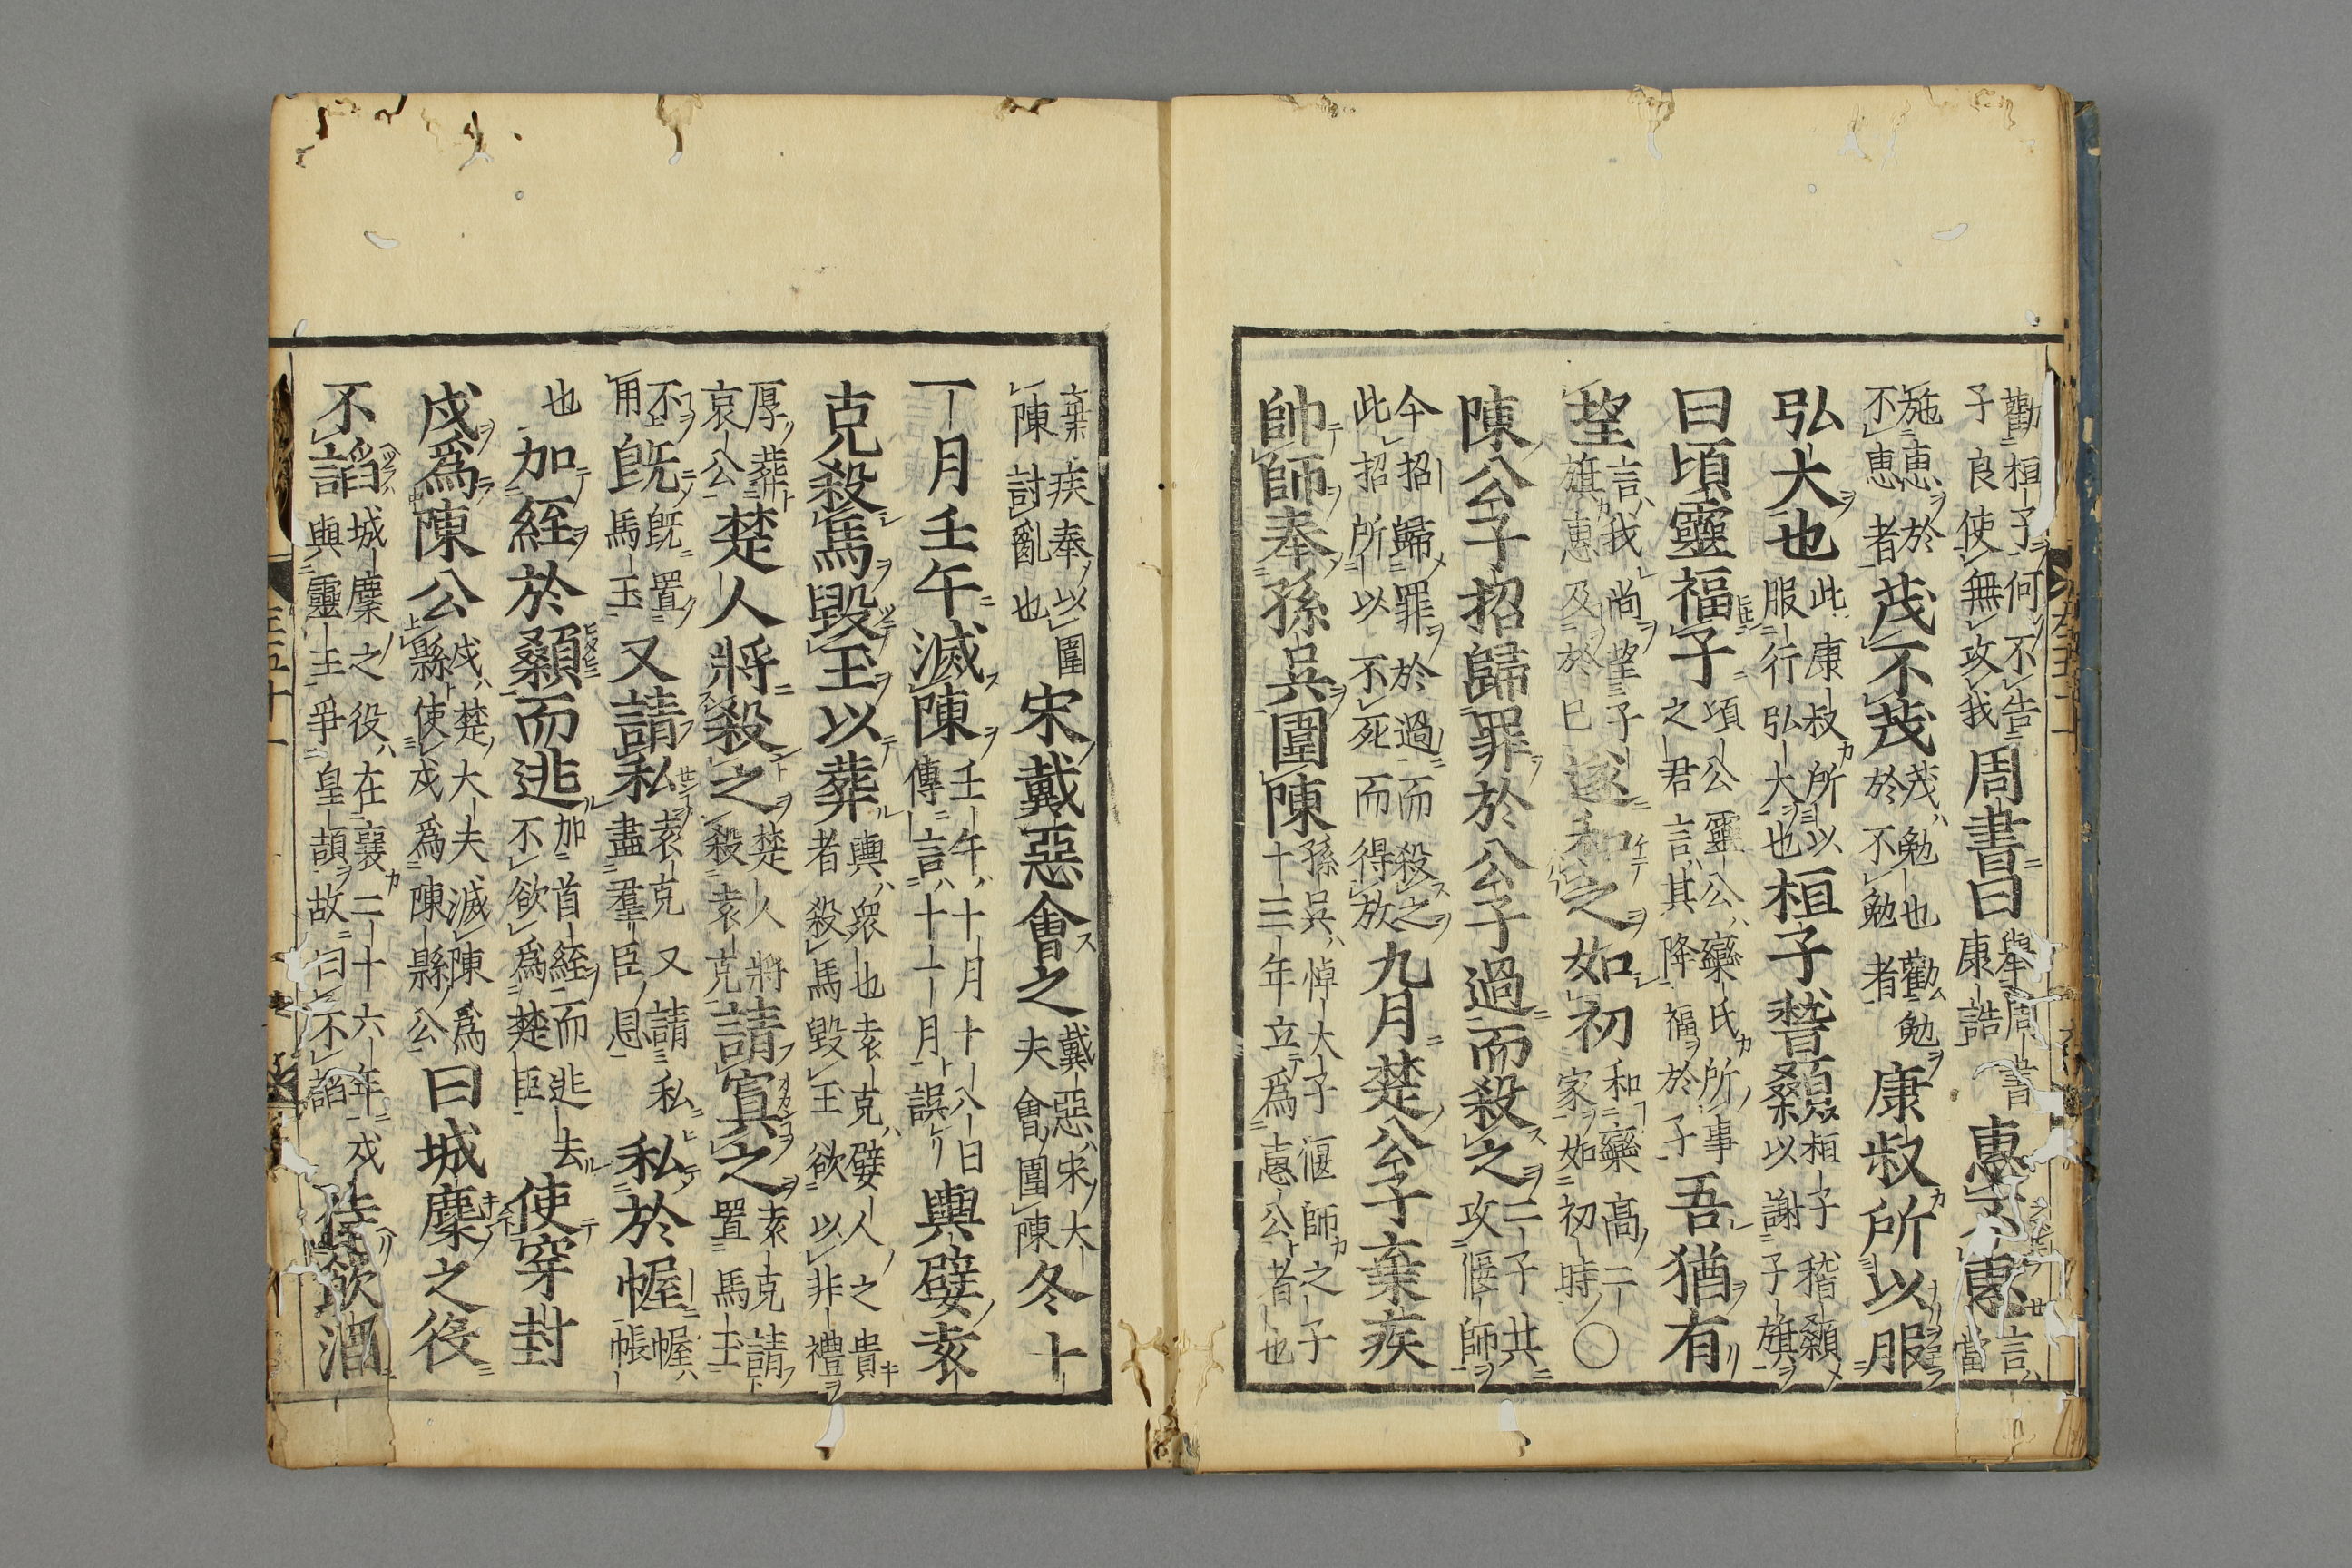 勸桓子何不告
子良使無攻我
周書曰
周書
康誥
惠不惠
言
當
施惠於
不惠者
茂不茂
茂勉也勸勉
於不勉者
康叔所以服
弘大也
此康叔所以
服行弘大也
桓子稽顙
桓子稽顙
以謝子旗
曰頃靈福子
頃公靈公欒氏所事
之君言其降福於子
吾猶有
望
言我尚望子
旗惠及於已
遂和之如初
和欒高二
家如初時
〇
陳公子招歸罪於公子過而殺之
二子共
攻偃師
今招歸罪於過而殺之
此招所以不死而得放
九月楚公子棄疾
帥師奉孫吳圍陳
孫吳悼大子偃師之子
十三年立爲惠公者也
棄疾奉以圍
陳討亂也
宋戴惡會之
戴惡宋大
夫會圍陳
冬十
一月壬午滅陳
壬午十月十八日
傳言十一月誤
輿嬖袁
克殺馬毀玉以葬
輿衆也袁克嬖人之貴
者殺馬毀玉欲以非禮
厚葬
哀公
楚人將殺之
楚人將
殺袁克
請寘之
袁克請
置馬玉
不
用
既
既置
馬玉
又請私
袁克又請私
盡羣臣恩
私於幄
幄
帳
也
加絰於顙而逃
加首絰而逃去
不欲爲楚臣
使穿封
戌爲陳公
戌楚大夫滅陳爲
縣使戌爲陳縣公
曰城麇之役
不諂
城麇之役在襄二十六年戌
與靈王爭皇頡故曰不諂
侍飲酒